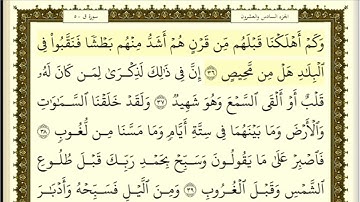 الجزء السادس والعشرون
سورة ق ٥٠
وَكَمْ أَهْلَكْنَا قَبْلَهُم مِّن قَرْنٍ هُمْ أَشَدُّ مِنْهُم بَطْشًا فَنَقَّبُوا۟ فِى
ٱلْبِلَٰدِ هَلْ مِن مَّحِيصٍ ٣٦ إِنَّ فِى ذَٰلِكَ لَذِكْرَىٰ لِمَن كَانَ لَهُۥ
قَلْبٌ أَوْ أَلْقَى ٱلسَّمْعَ وَهُوَ شَهِيدٌ ٣٧ وَلَقَدْ خَلَقْنَا ٱلسَّمَٰوَٰتِ
وَٱلْأَرْضَ وَمَا بَيْنَهُمَا فِى سِتَّةِ أَيَّامٍ وَمَا مَسَّنَا مِن لُّغُوبٍ ٣٨
فَٱصْبِرْ عَلَىٰ مَا يَقُولُونَ وَسَبِّحْ بِحَمْدِ رَبِّكَ قَبْلَ طُلُوعِ
ٱلشَّمْسِ وَقَبْلَ ٱلْغُرُوبِ ٣٩ وَمِنَ ٱلَّيْلِ فَسَبِّحْهُ وَأَدْبَٰرَ